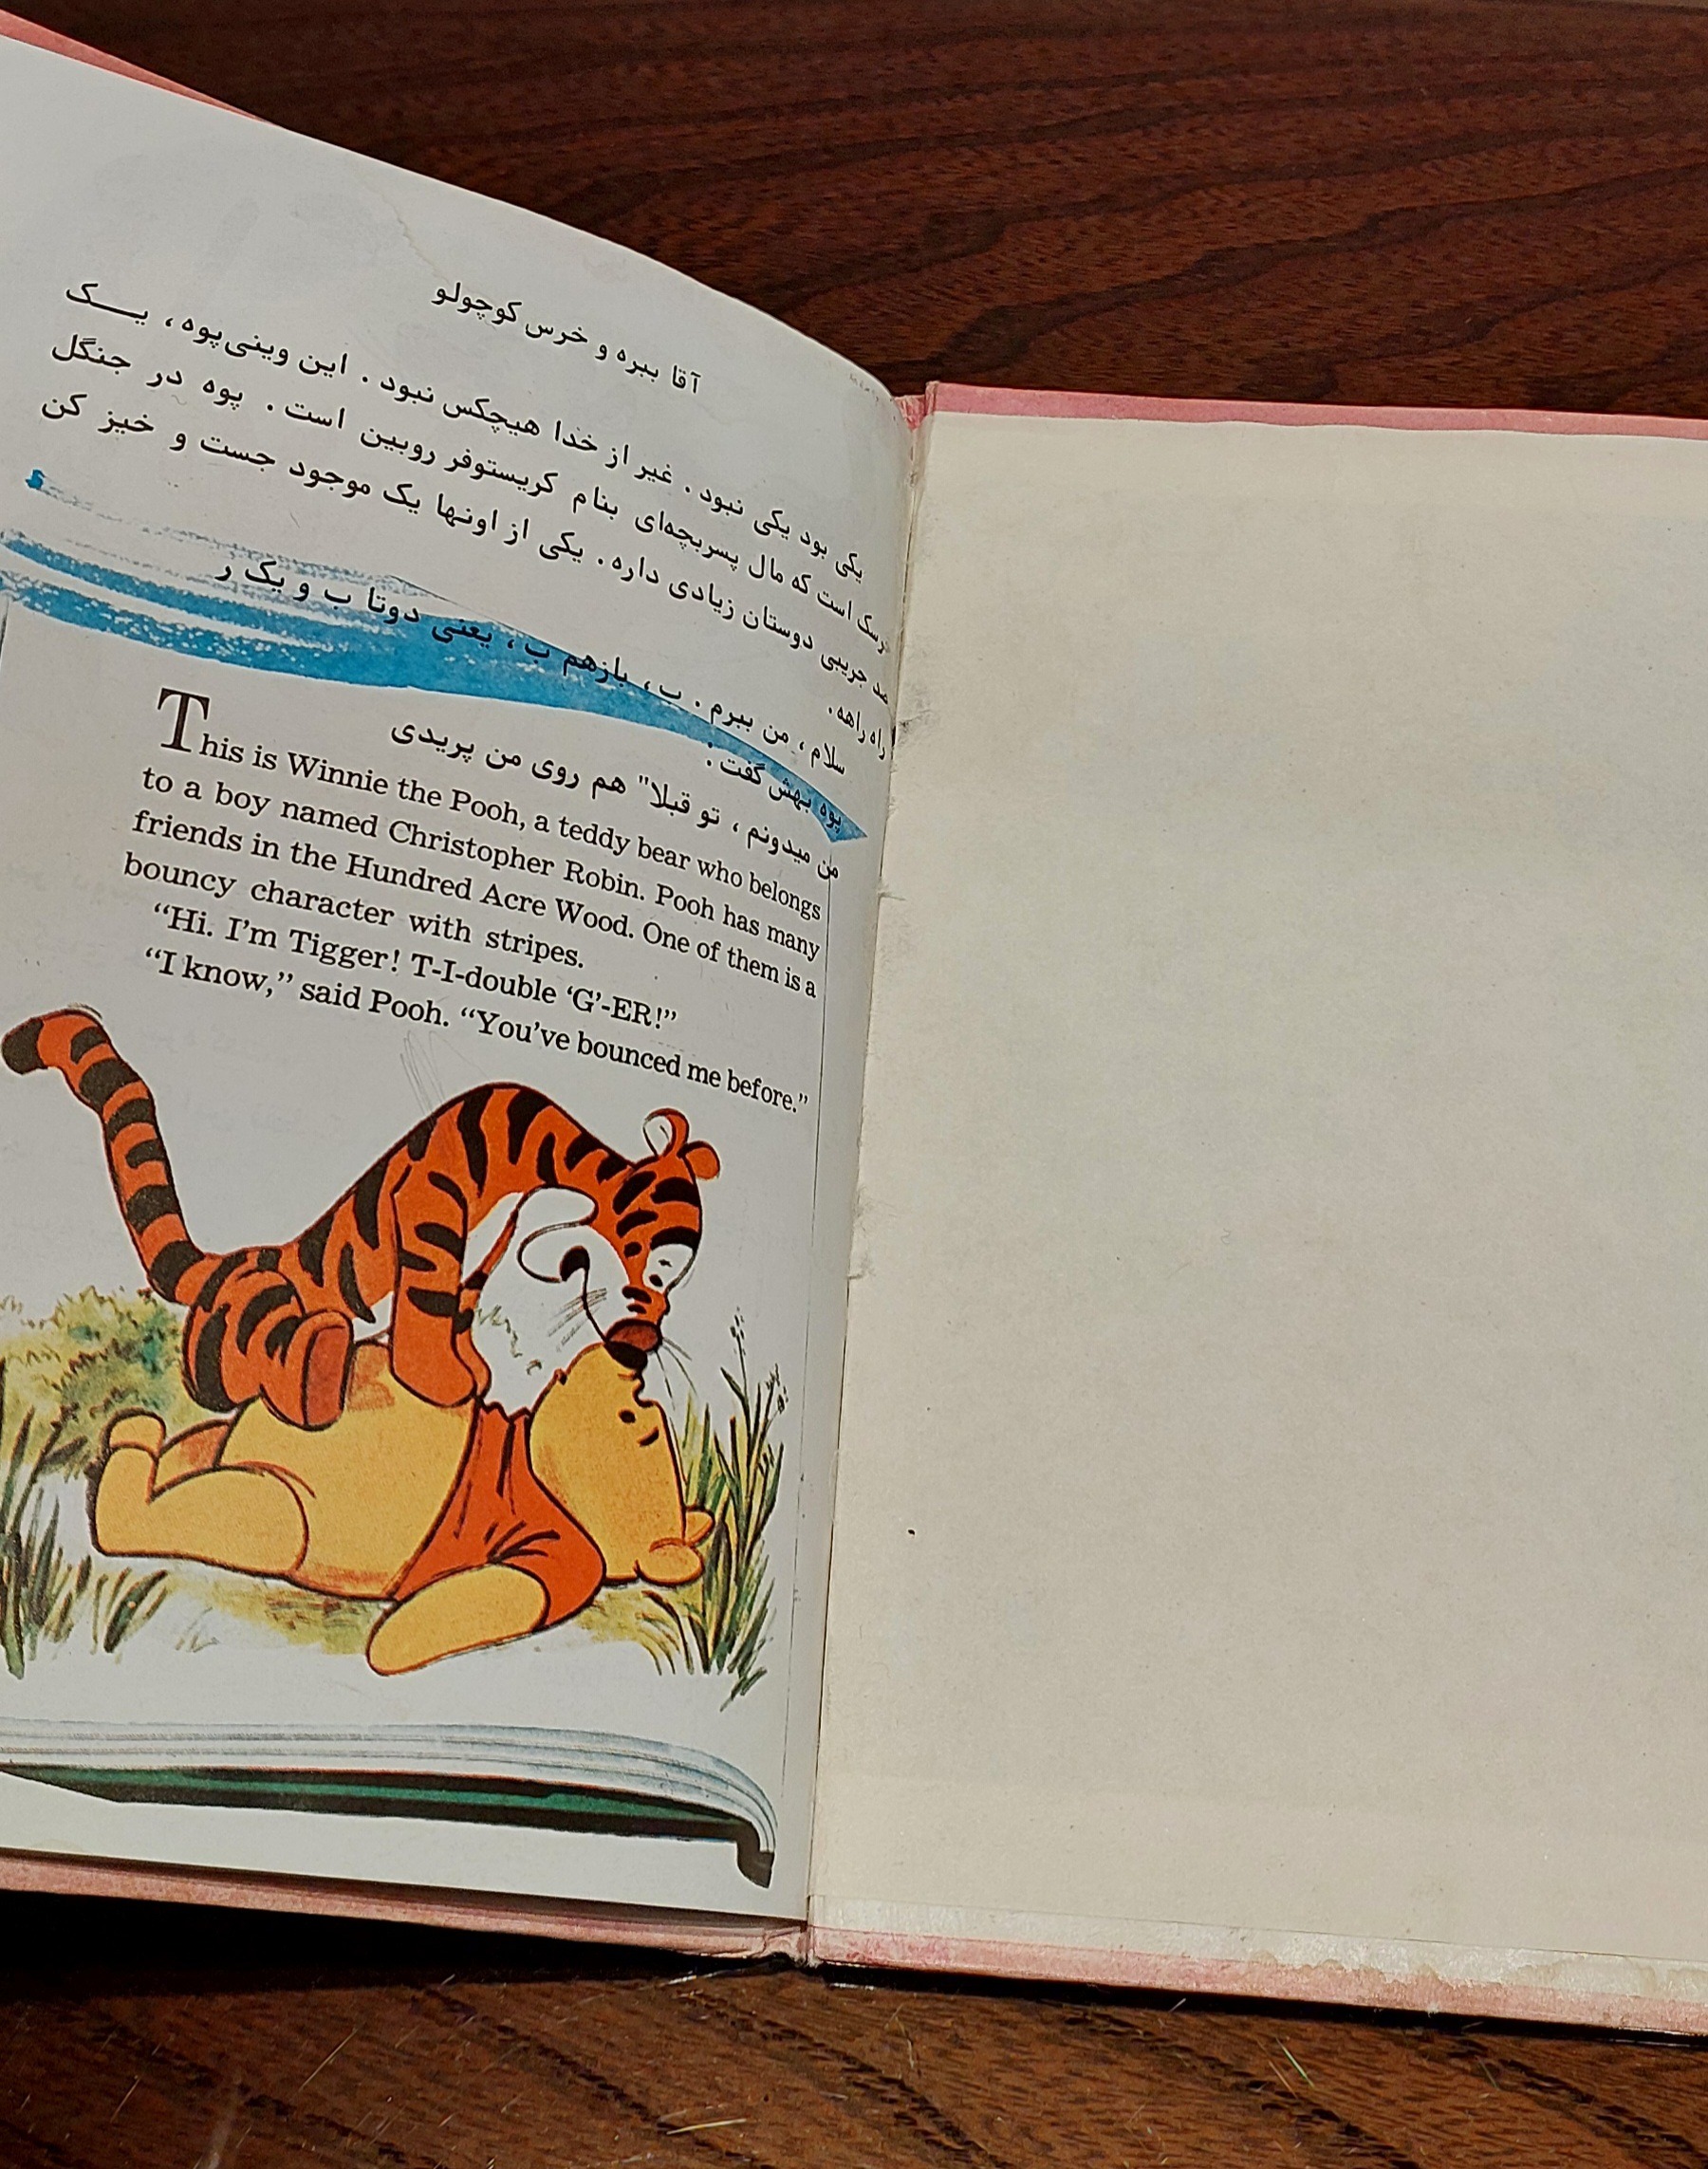 آقا ببره و خرس کوچولو
یکی بود یکی نبود . غیر از خدا هیچکس نبود . این وینی‌پوه ، یک
است که مال پسربچه‌ای بنام کریستوفر روبین است . پوه در جنگل
جریبی دوستان زیادی داره . یکی از اونها یک موجود جست و خیز کن
راه راهه .
سلام ، من ببرم . ب ، بازهم ب ، یعنی دوتا ب و یک ر
پوه بهش گفت :
من میدونم ، تو قبلا" هم روی من پریدی
This is Winnie the Pooh, a teddy bear who belongs
to a boy named Christopher Robin. Pooh has many
friends in the Hundred Acre Wood. One of them is a
bouncy character with stripes.
“Hi. I’m Tigger! T-I-double ‘G’-ER!”
“I know,” said Pooh. “You’ve bounced me before.”